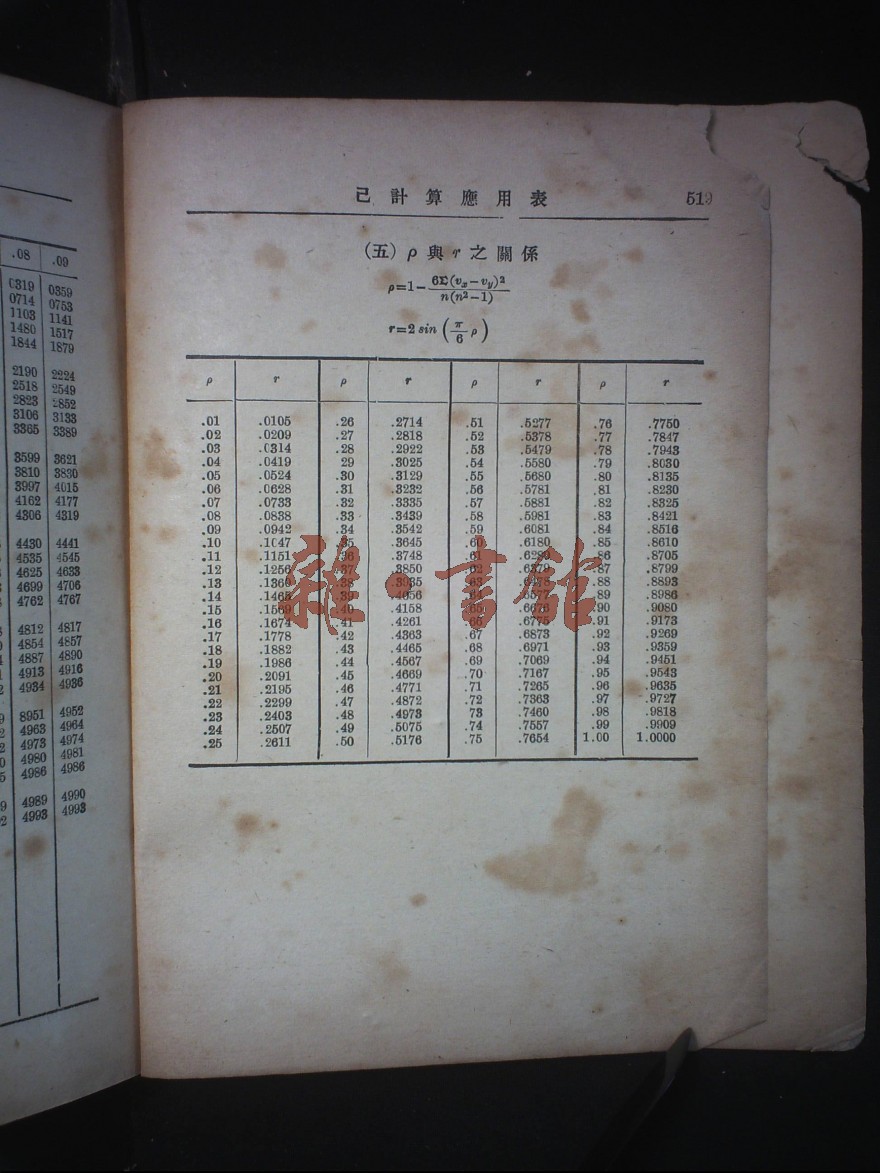 .08 .09
0319 0359
0714 0753
1103 1141
1480 1517
1844 1879
2190 2224
2518 2549
2823 2852
3106 3133
3365 3389
3599 3621
3810 3830
3997 4015
4162 4177
4306 4319
4430 4441
4535 4545
4625 4633
4699 4706
4762 4767
4812 4817
4854 4857
4887 4890
4913 4916
4934 4936
8951 4952
4963 4964
4973 4974
4980 4981
4986 4986
4989 4990
4993 4993
己計算應用表 519
(五) ρ 與 r 之關係
ρ=1-6Σ(vₓ-vᵧ)²/n(n²-1)
r=2 sin (π/6 ρ)
ρ r ρ r ρ r ρ r
.01 .0105 .26 .2714 .51 .5277 .76 .7750
.02 .0209 .27 .2818 .52 .5378 .77 .7847
.03 .0314 .28 .2922 .53 .5479 .78 .7943
.04 .0419 29 .3025 .54 .5580 .79 .8030
.05 .0524 .30 .3129 .55 .5680 .80 .8135
.06 .0628 .31 .3232 .56 .5781 .81 .8230
.07 .0733 .32 .3335 .57 .5881 .82 .8325
.08 .0838 .33 .3439 .58 .5981 .83 .8421
.09 .0942 .34 .3542 .59 .6081 .84 .8516
.10 .1047 .35 .3645 .60 .6180 .85 .8610
.11 .1151 .36 .3748 .61 .6280 .86 .8705
.12 .1256 .37 .3850 .62 .6379 .87 .8799
.13 .1360 .38 .3935 .63 .6478 .88 .8893
.14 .1465 .39 .4056 .64 .6577 .89 .8986
.15 .1569 .40 .4158 .65 .6676 .90 .9080
.16 .1674 .41 .4261 .66 .6775 .91 .9173
.17 .1778 .42 .4363 .67 .6873 .92 .9269
.18 .1882 .43 .4465 .68 .6971 .93 .9359
.19 .1986 .44 .4567 .69 .7069 .94 .9451
.20 .2091 .45 .4669 .70 .7167 .95 .9543
.21 .2195 .46 .4771 .71 .7265 .96 .9635
.22 .2299 .47 .4872 .72 .7363 .97 .9727
.23 .2403 .48 .4973 73 .7460 .98 .9818
.24 .2507 .49 .5075 .74 .7557 .99 .9909
.25 .2611 .50 .5176 .75 .7654 1.00 1.0000
雜·書館